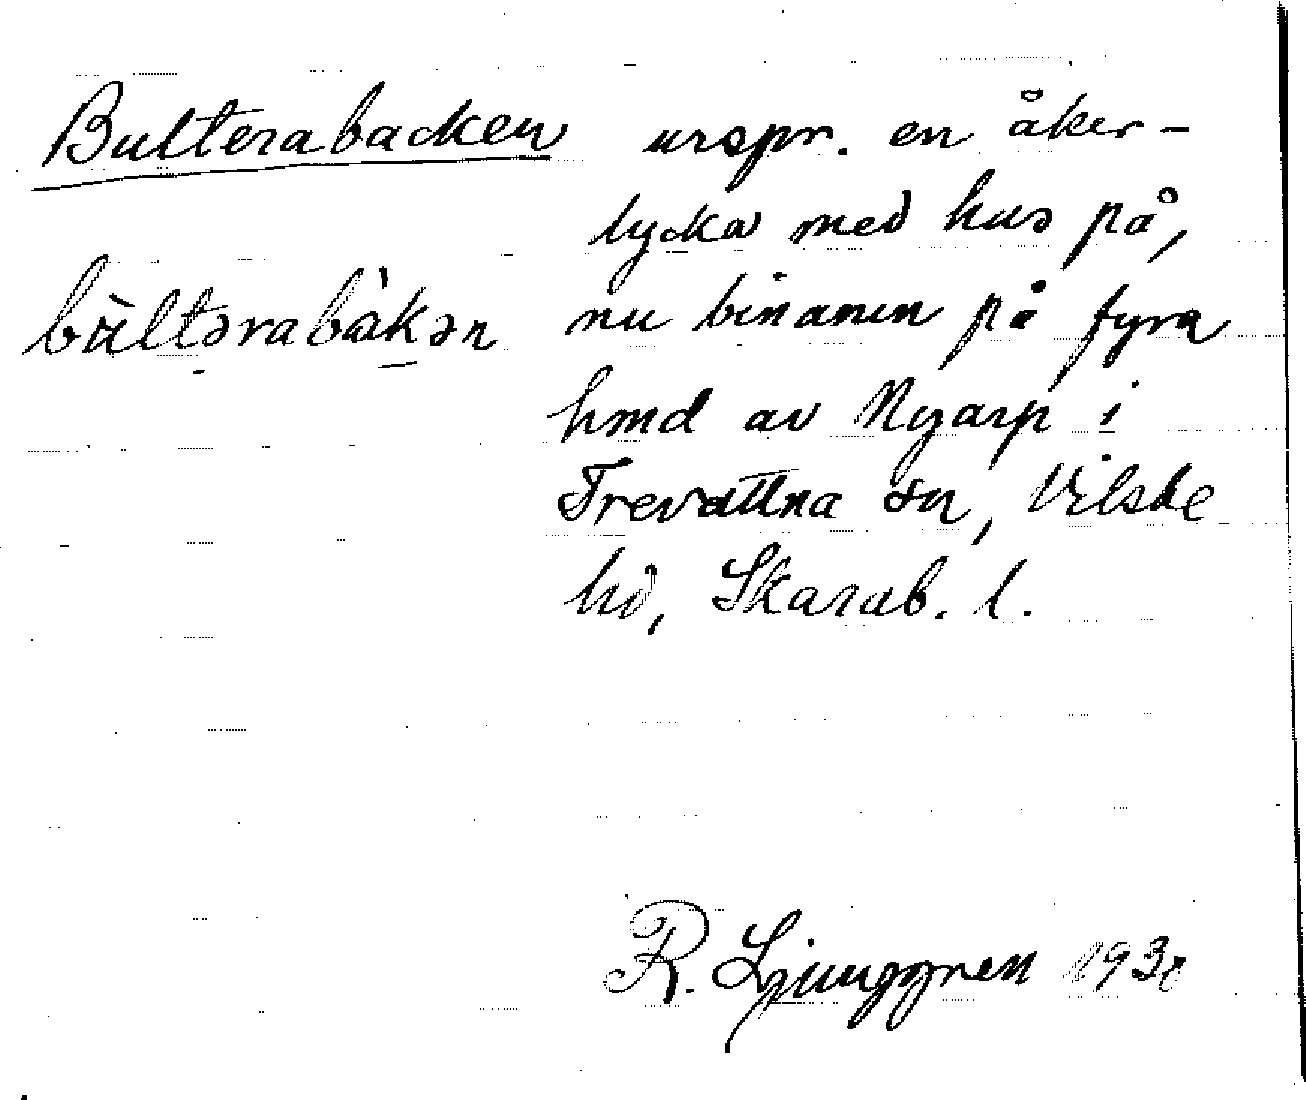 Bulterabacken urspr. en åker-
lycka med hus på,
bùltərabàkən nu binamn på fyra
hmd av Nyarp i
Trevattna sn, Vilske
hd, Skarab. l.
R. Ljunggren